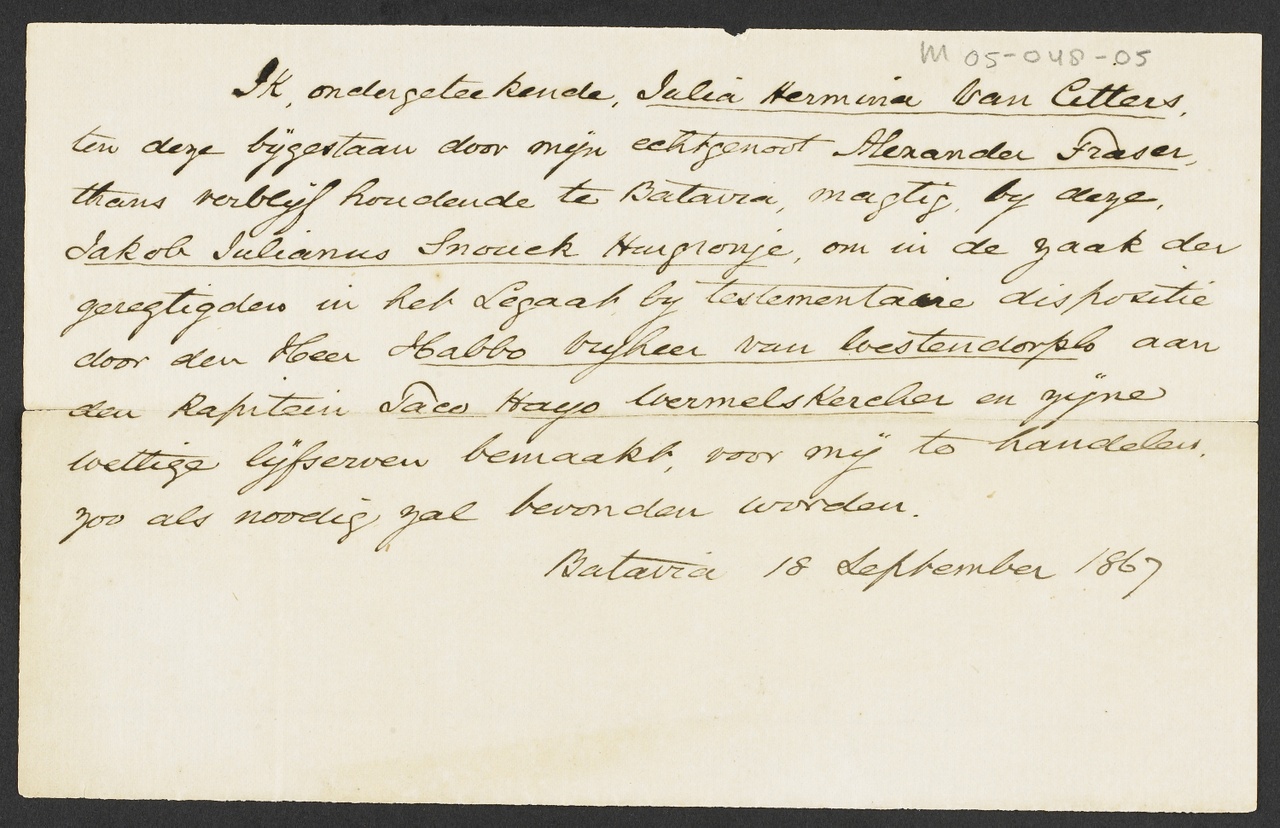 M 05-048-05
Ik, ondergeteekende, Julia Hermina Van Citters,
ten deze bijgestaan door mijn echtgenoot Alexander Fraser,
thans verblijf houdende te Batavia, magtig, by deze,
Jakob Julianus Snouck Hurgronje, om in de zaak der
geregtigden in het Legaat by testementaire dispositie
door den Heer Habbo Vryheer van Westendorpb aan
den Kapitein Taco Hayo Wermelskercher en zijne
wettige lijfserven bemaakt, voor mij te handelen,
zoo als noodig zal bevonden worden.
Batavia 18 September 1867